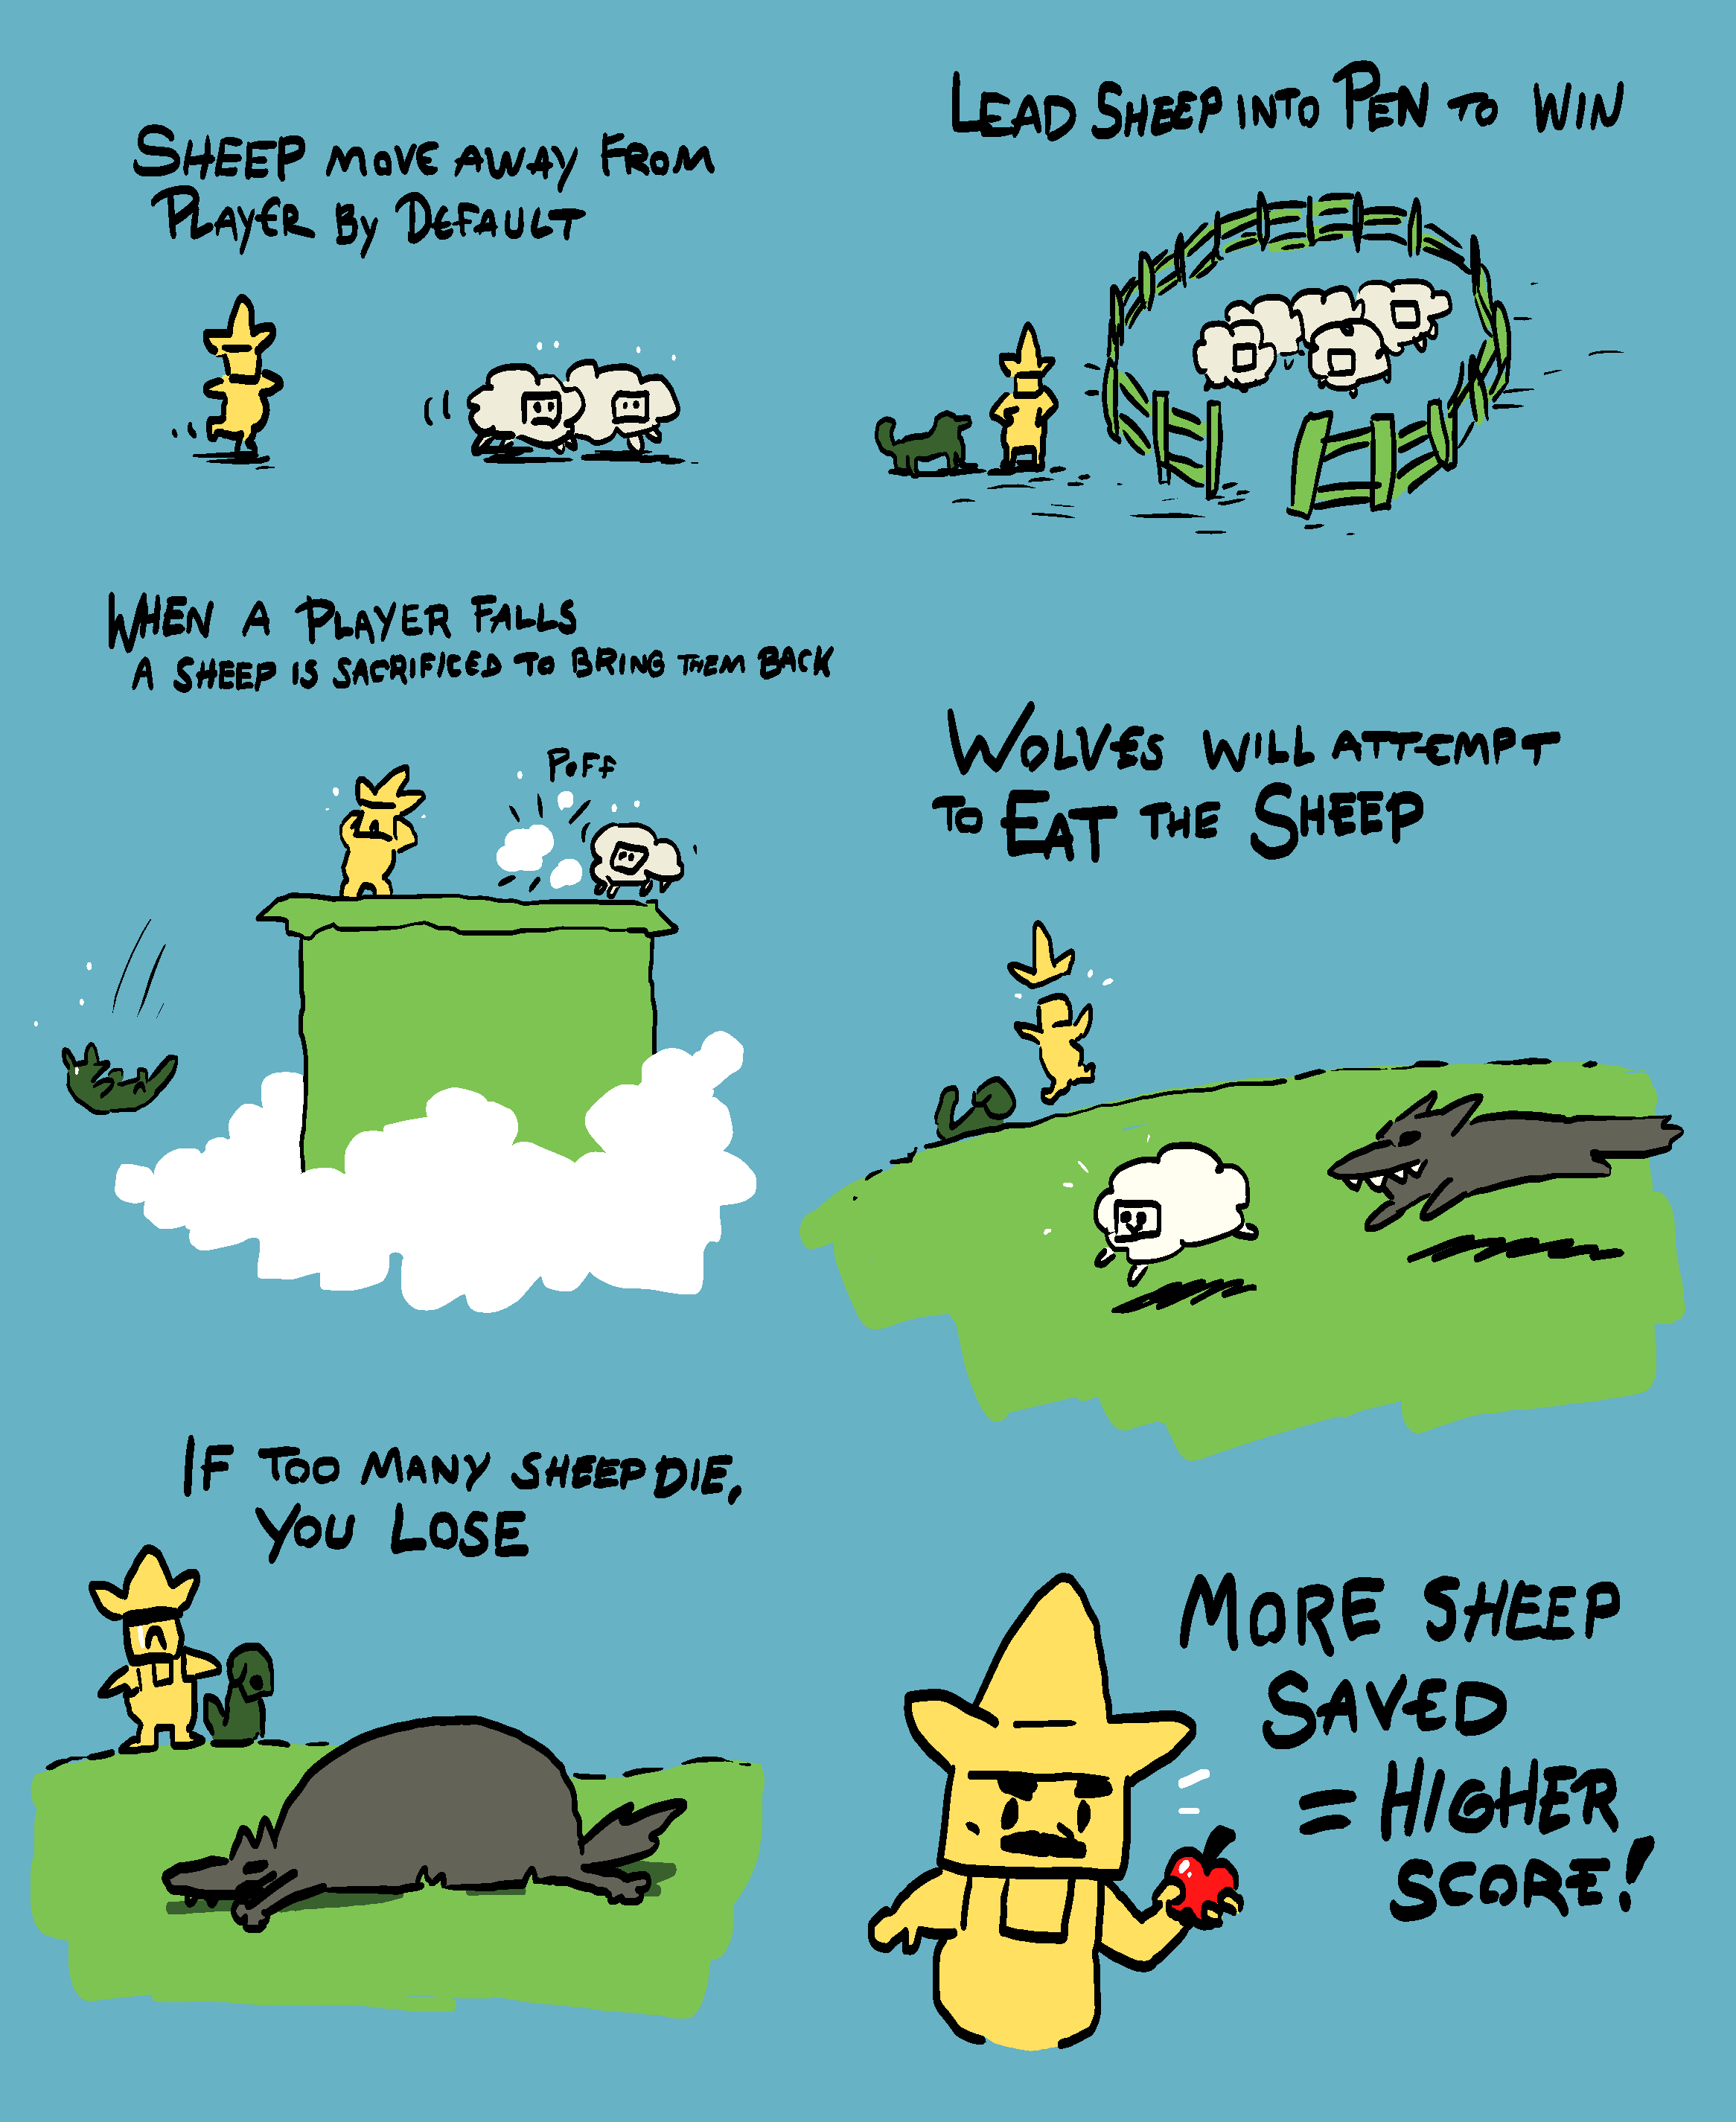 SHEEP MOVE AWAY FROM
PLAYER BY DEFAULT
LEAD SHEEP INTO PEN TO WIN
WHEN A PLAYER FALLS
A SHEEP IS SACRIFICED TO BRING THEM BACK
POFF
WOLVES WILL ATTEMPT
TO EAT THE SHEEP
IF TOO MANY SHEEP DIE,
YOU LOSE
MORE SHEEP
SAVED
= HIGHER
SCORE!